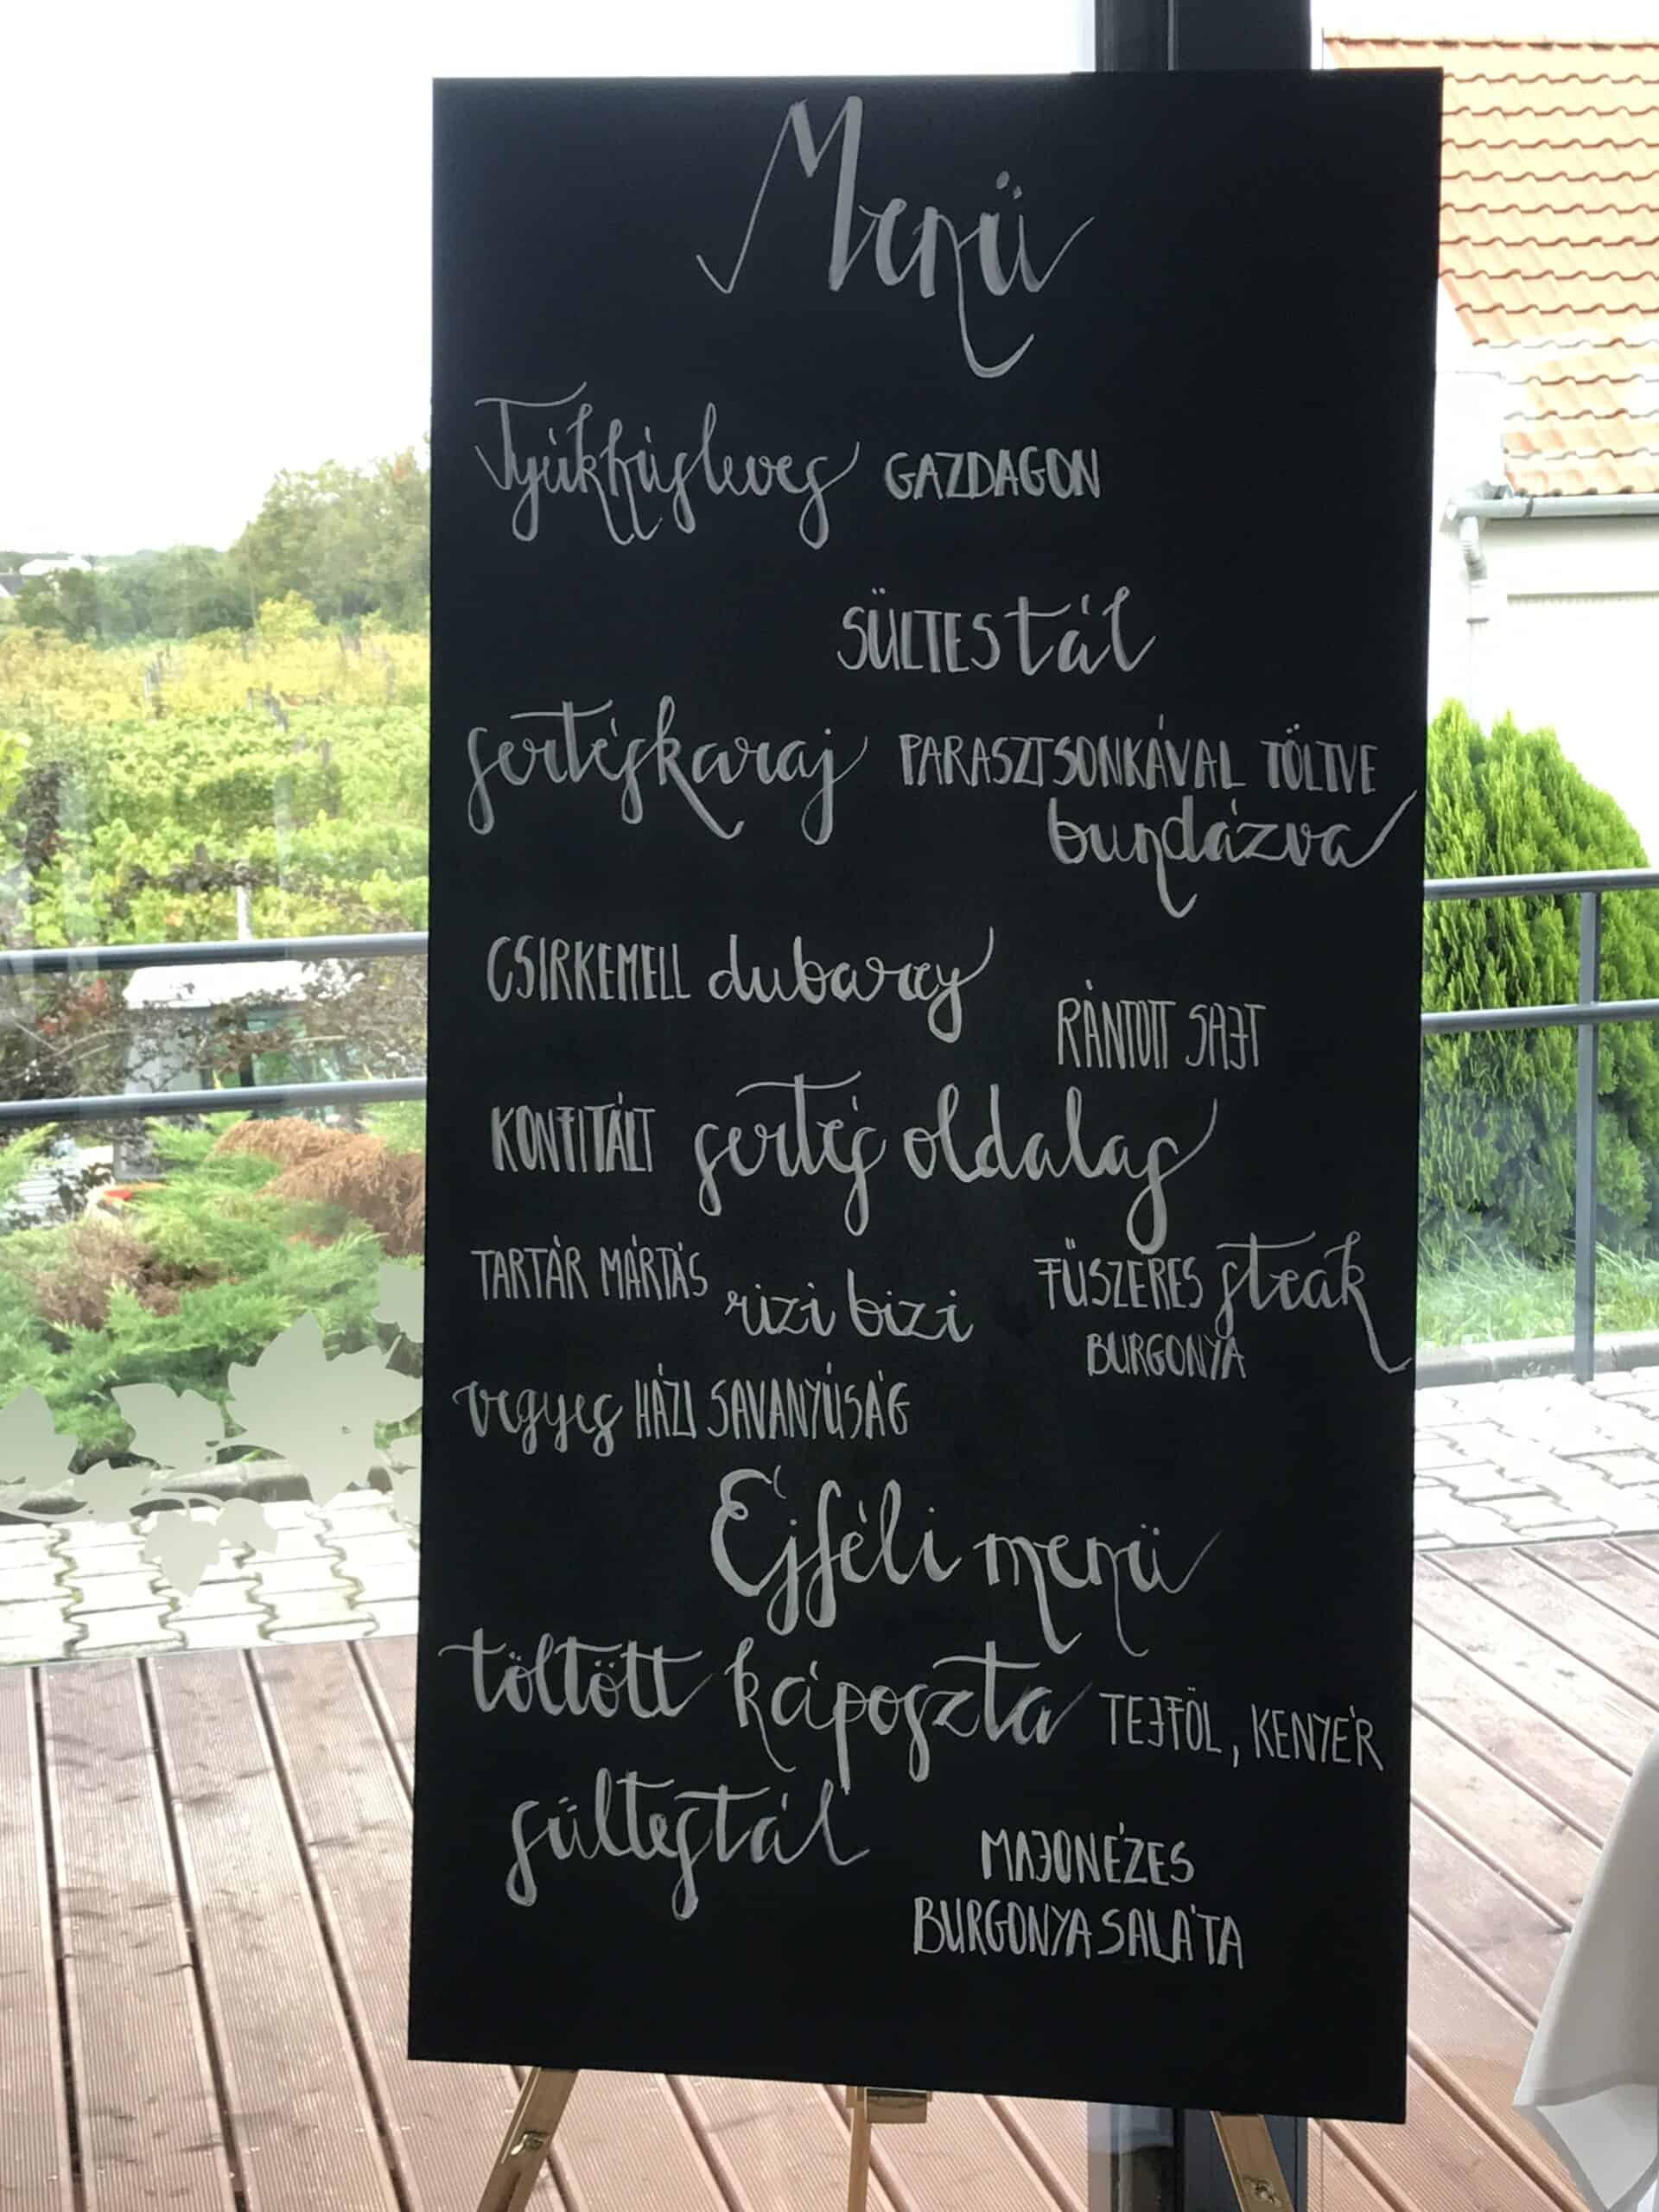 Menü
Tyúkhúsleves GAZDAGON
SÜLTES tál
sertéskaraj PARASZTSONKÁVAL TÖLTVE
bundázva
CSIRKEMELL dubarry
RÁNTOTT SAJT
KONFITÁLT sertés oldalas
TARTÁR MÁRTÁS rizi bizi FŰSZERES steak
BURGONYA
vegyes HÁZI SAVANYÚSÁG
Éjféli menü
töltött káposzta TEJFÖL, KENYÉR
sültestál
MAJONÉZES
BURGONYASALÁTA